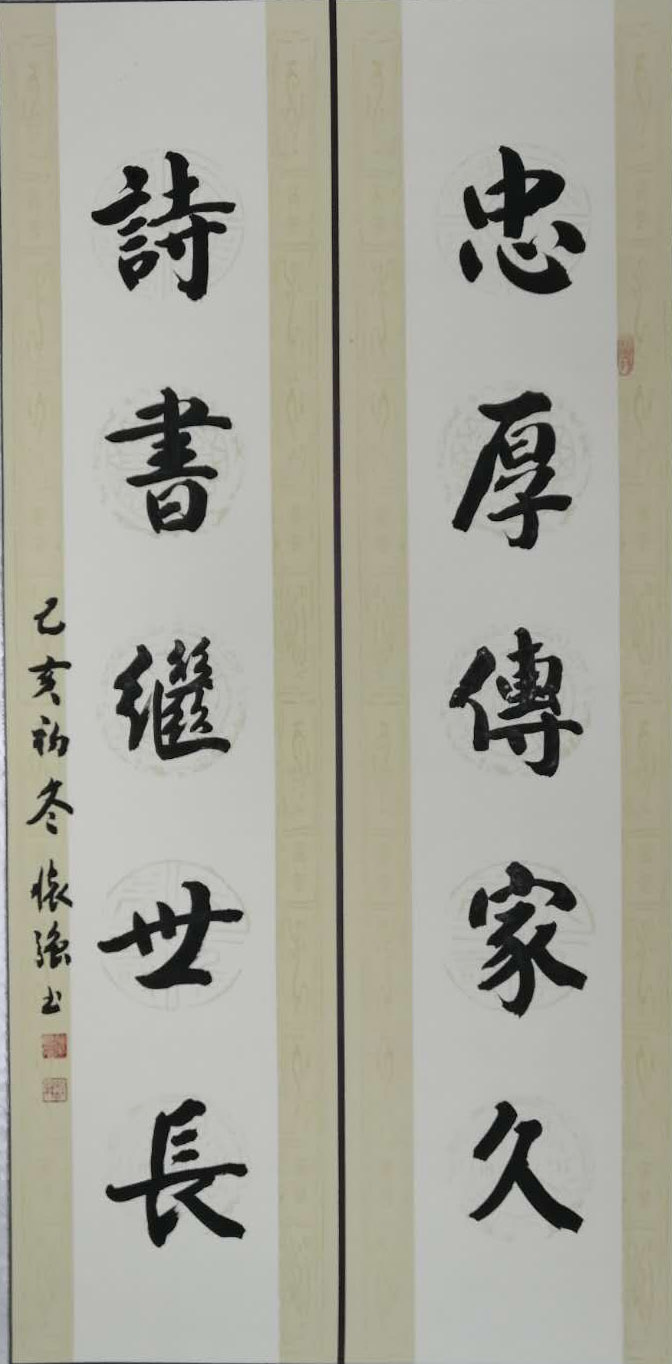 忠厚傳家久
詩書繼世長
己亥初冬懷強书